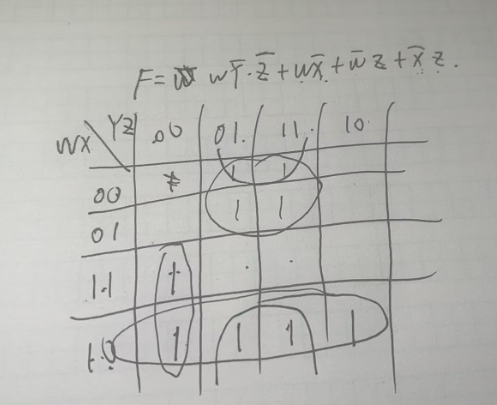 F = w Y̅·Z̅ + wX̅ + w̅ z + X̅ z.
WX YZ 00 01. 11. 10
00 1 1
01 1 1
11 1
10 1 1 1 1